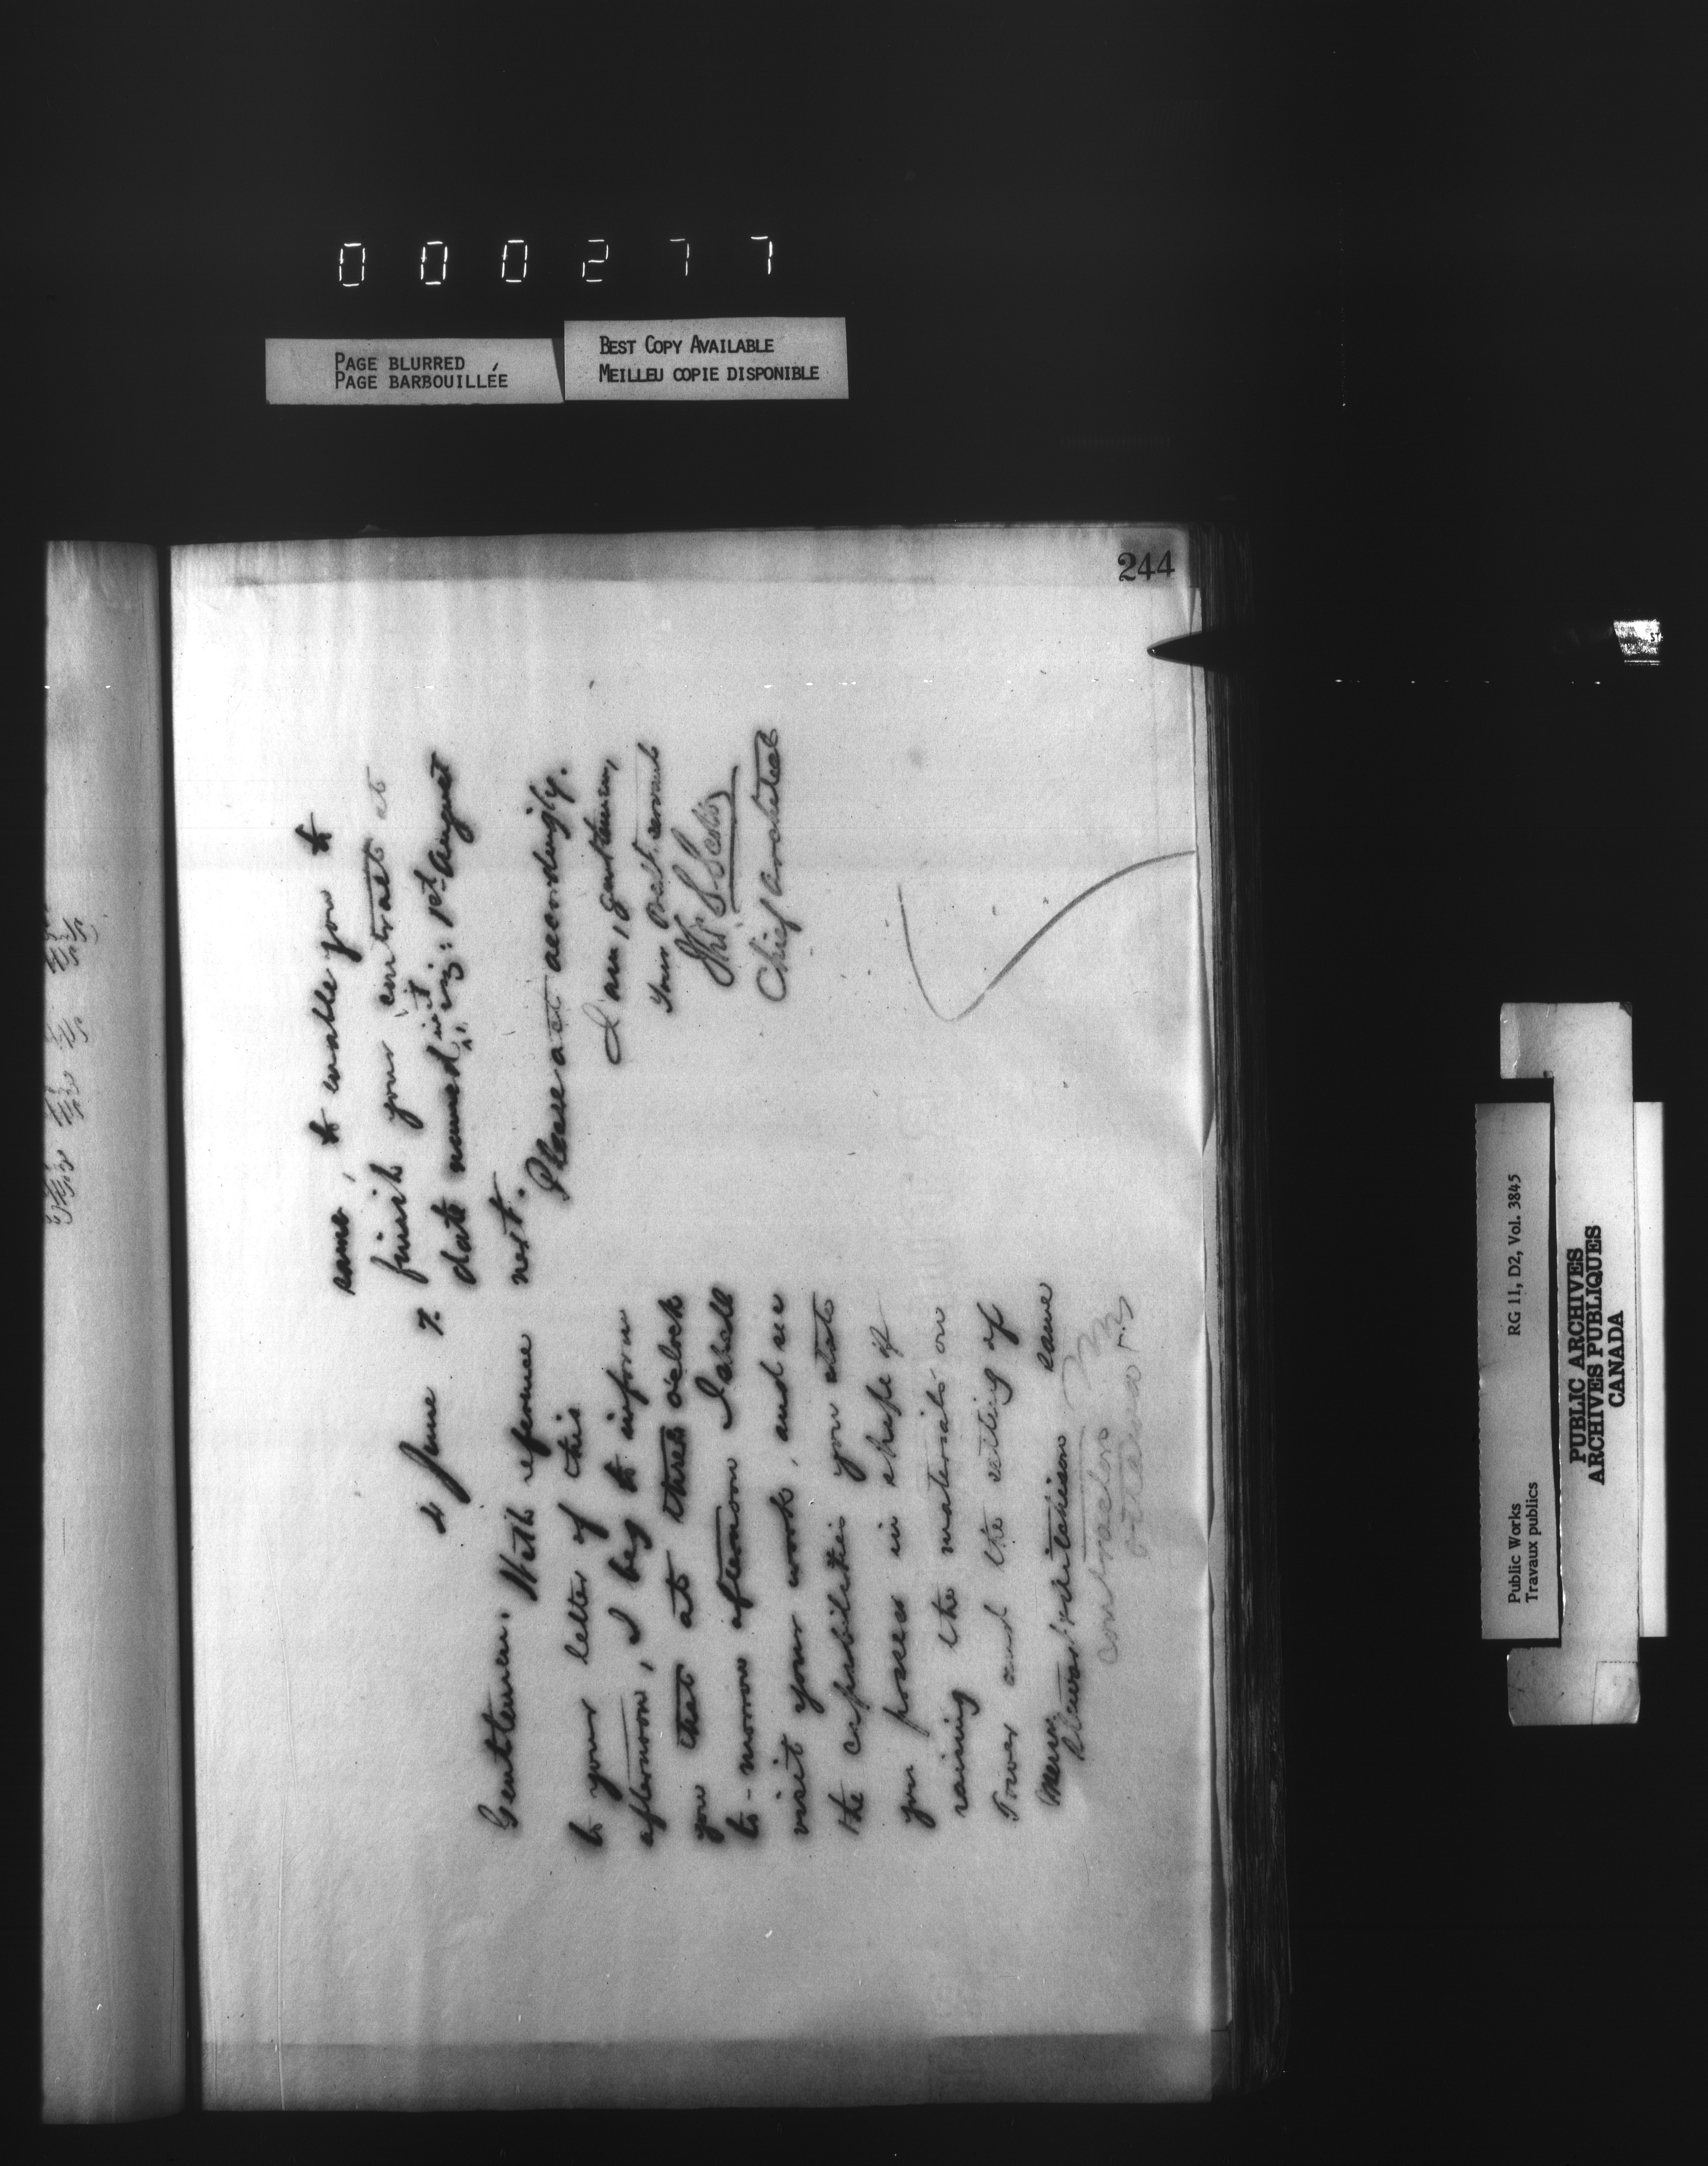 000277
PAGE BLURRED
PAGE BARBOUILLÉE
BEST COPY AVAILABLE
MEILLEU COPIE DISPONIBLE
244
4 June 7.
Gentlemen. With reference
to your letter of this
afternoon, I beg to inform
you that at three o'clock
to-morrow afternoon I shall
visit your works, and see
the capabilities you state
you possess in shape of
raising the materials on
Tower and the setting of
Messrs same
Contractors
Ottawa
same, to enable you to
finish your contract at
date named in it, viz: 1st August
next.
Please act accordingly.
I am, Gentlemen,
Your Obedt. servant
Thos S Scott
Chief Architect
Public Works
Travaux publics
RG 11, D2, Vol. 3845
PUBLIC ARCHIVES
ARCHIVES PUBLIQUES
CANADA